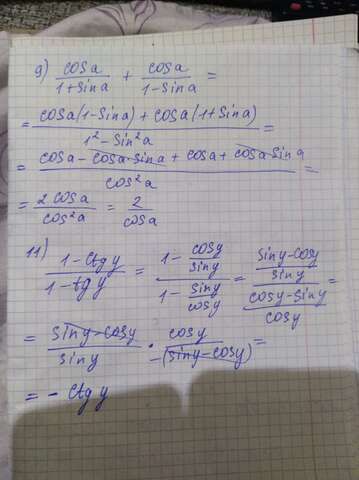 9) cosa/(1+sina) + cosa/(1-sina) =
= (cosa(1-sina) + cosa(1+sina))/(1²-sin²a) =
= (cosa - cosa·sina + cosa + cosa·sina)/cos²a =
= 2cosa/cos²a = 2/cosa
11) (1-ctgy)/(1-tgy) = (1 - cosy/siny)/(1 - siny/cosy) = ((siny-cosy)/siny)/((cosy-siny)/cosy) =
= (siny-cosy)/siny · cosy/(-(siny-cosy)) =
= - ctgy